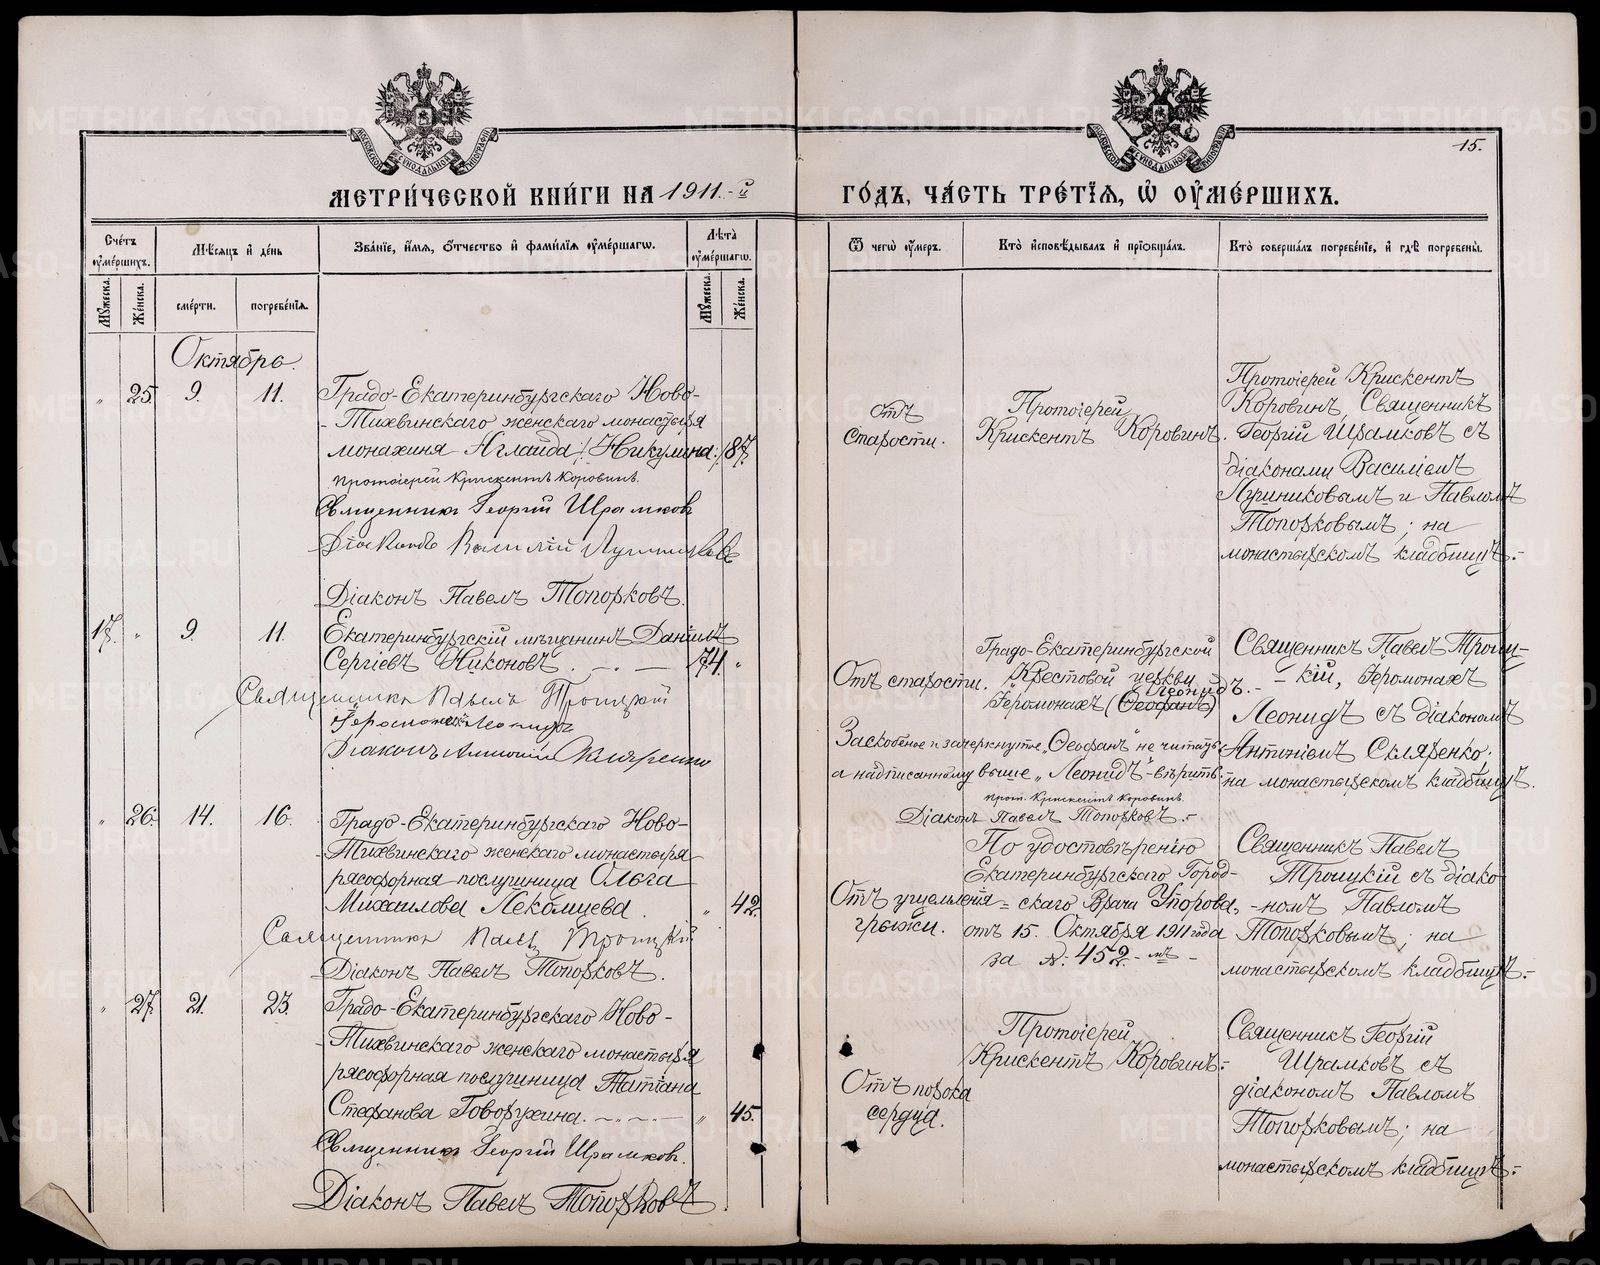 МЕТРИЧЕСКОЙ КНИГИ НА 1911-й
ГОДЪ, ЧАСТЬ ТРЕТІЯ, Ѿ ОУМЕРШИХЪ.
15.
Счетъ оумершихъ.
Мѣсяцъ и день
Званіе, имя, отчество и фамилія оумершагѡ.
Лѣта оумершагѡ.
Ѿ чегѡ оумеръ.
Кто исповѣдывалъ и пріобщалъ.
Кто совершалъ погребеніе, и гдѣ погребены.
Мужеска.
Женска.
смерти.
погребенія.
Мужеска.
Женска.
Октябрь.
" 25. 9. 11.
Градо-Екатеринбургскаго Ново-
-Тихвинскаго женскаго монастыря
монахиня Аглаида /: Никулина :/ 87.
Протоіерей Крискентъ Коровинъ.
Священникъ Георгій Шрамковъ
Діаконъ Василій Лушниковъ
Діаконъ Павелъ Топорковъ.
Отъ
старости.
Протоіерей
Крискентъ Коровинъ.
Протоіерей Крискентъ
Коровинъ, Священникъ
Георгій Шрамковъ съ
діаконами Василіемъ
Лушниковымъ и Павломъ
Топорковымъ; на
монастырскомъ кладбищѣ.-
17. " 9. 11.
Екатеринбургскій мѣщанинъ Даніилъ
Сергіевъ Никоновъ. 74. "
Священникъ Павелъ Троицкій
Іеромонахъ Леонидъ
Діаконъ Антоній Скляренко
Отъ старости.
Градо-Екатеринбургской
Крестовой церкви
Леонидъ.-
Іеромонахъ (Ѳеофанъ)
Заскобеное и зачеркнутое „Ѳеофанъ" не читать,
а надписанному выше „Леонидъ"-вѣрить.
Прот. Крискентъ Коровинъ.
Діаконъ Павелъ Топорковъ.-
Священникъ Павелъ Троиц-
-кій, Іеромонахъ
Леонидъ съ діакономъ
Антоніемъ Скляренко;
на монастырскомъ кладбищѣ.
" 26. 14. 16.
Градо-Екатеринбургскаго Ново-
-Тихвинскаго женскаго монастыря
рясофорная послушница Ольга
Михаилова Лекомцева. " 42.
Священникъ Павелъ Троицкій
Діаконъ Павелъ Топорковъ.
Отъ ущемленія
грыжи.
По удостовѣренію
Екатеринбургскаго Город-
=скаго Врача Упорова,
отъ 15. Октября 1911 года
за №. 452.-мъ -
Священникъ Павелъ
Троицкій съ діако-
-номъ Павломъ
Топорковымъ; на
монастырскомъ кладбищѣ.-
" 27. 21. 23.
Градо-Екатеринбургскаго Ново-
-Тихвинскаго женскаго монастыря
рясофорная послушница Татіана
Стефанова Говорухина. " 45.
Священникъ Георгій Шрамковъ.
Діаконъ Павелъ Топорковъ
Отъ порока
сердца.
Протоіерей
Крискентъ Коровинъ.-
Священникъ Георгій
Шрамковъ съ
діакономъ Павломъ
Топорковымъ; на
монастырскомъ кладбищѣ.-